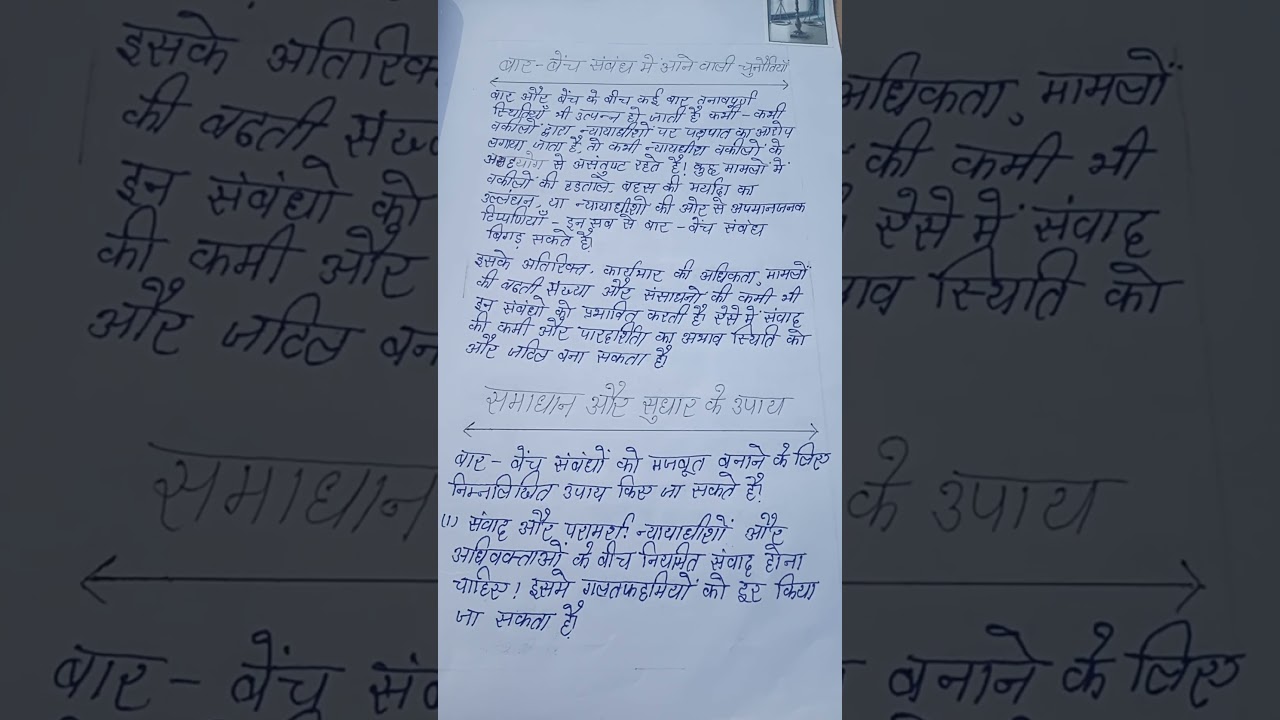 बार-बेंच संबंध में आने वाली चुनौतियाँ
बार और बेंच के बीच कई बार तनावपूर्ण
स्थितियाँ भी उत्पन्न हो जाती है कभी-कभी
वकीलों द्वारा न्यायाधीशों पर पक्षपात का आरोप
लगाया जाता है, तो कभी न्यायधीश वकीलों के
असहयोग से असंतुष्ट रहते है। कुछ मामलों में
वकीलों की हडताले, बहस की मर्यादा का
उल्लंघन, या न्यायाधीशों की ओर से अपमानजनक
टिप्पणियाँ - इन सब से बार-बेंच संबंध
बिगड़ सकते है।
इसके अतिरिक्त, कार्यभार की अधिकता, मामलों
की बढती संख्या और संसाधनो की कमी भी
इन संबंधो को प्रभावित करती है ऐसे में संवाद
की कमी और पारदर्शिता का अभाव स्थिति को
और जटिल बना सकता है।
समाधान और सुधार के उपाय
बार-बेंच संबंधों को मजबूत बनाने के लिए
निम्नलिखित उपाय किए जा सकते है।
(1) संवाद और परामर्श: न्यायाधीशों और
अधिवक्ताओं के बीच नियमित संवाद होना
चाहिए। इसमे गलतफहमियों को दूर किया
जा सकता है।